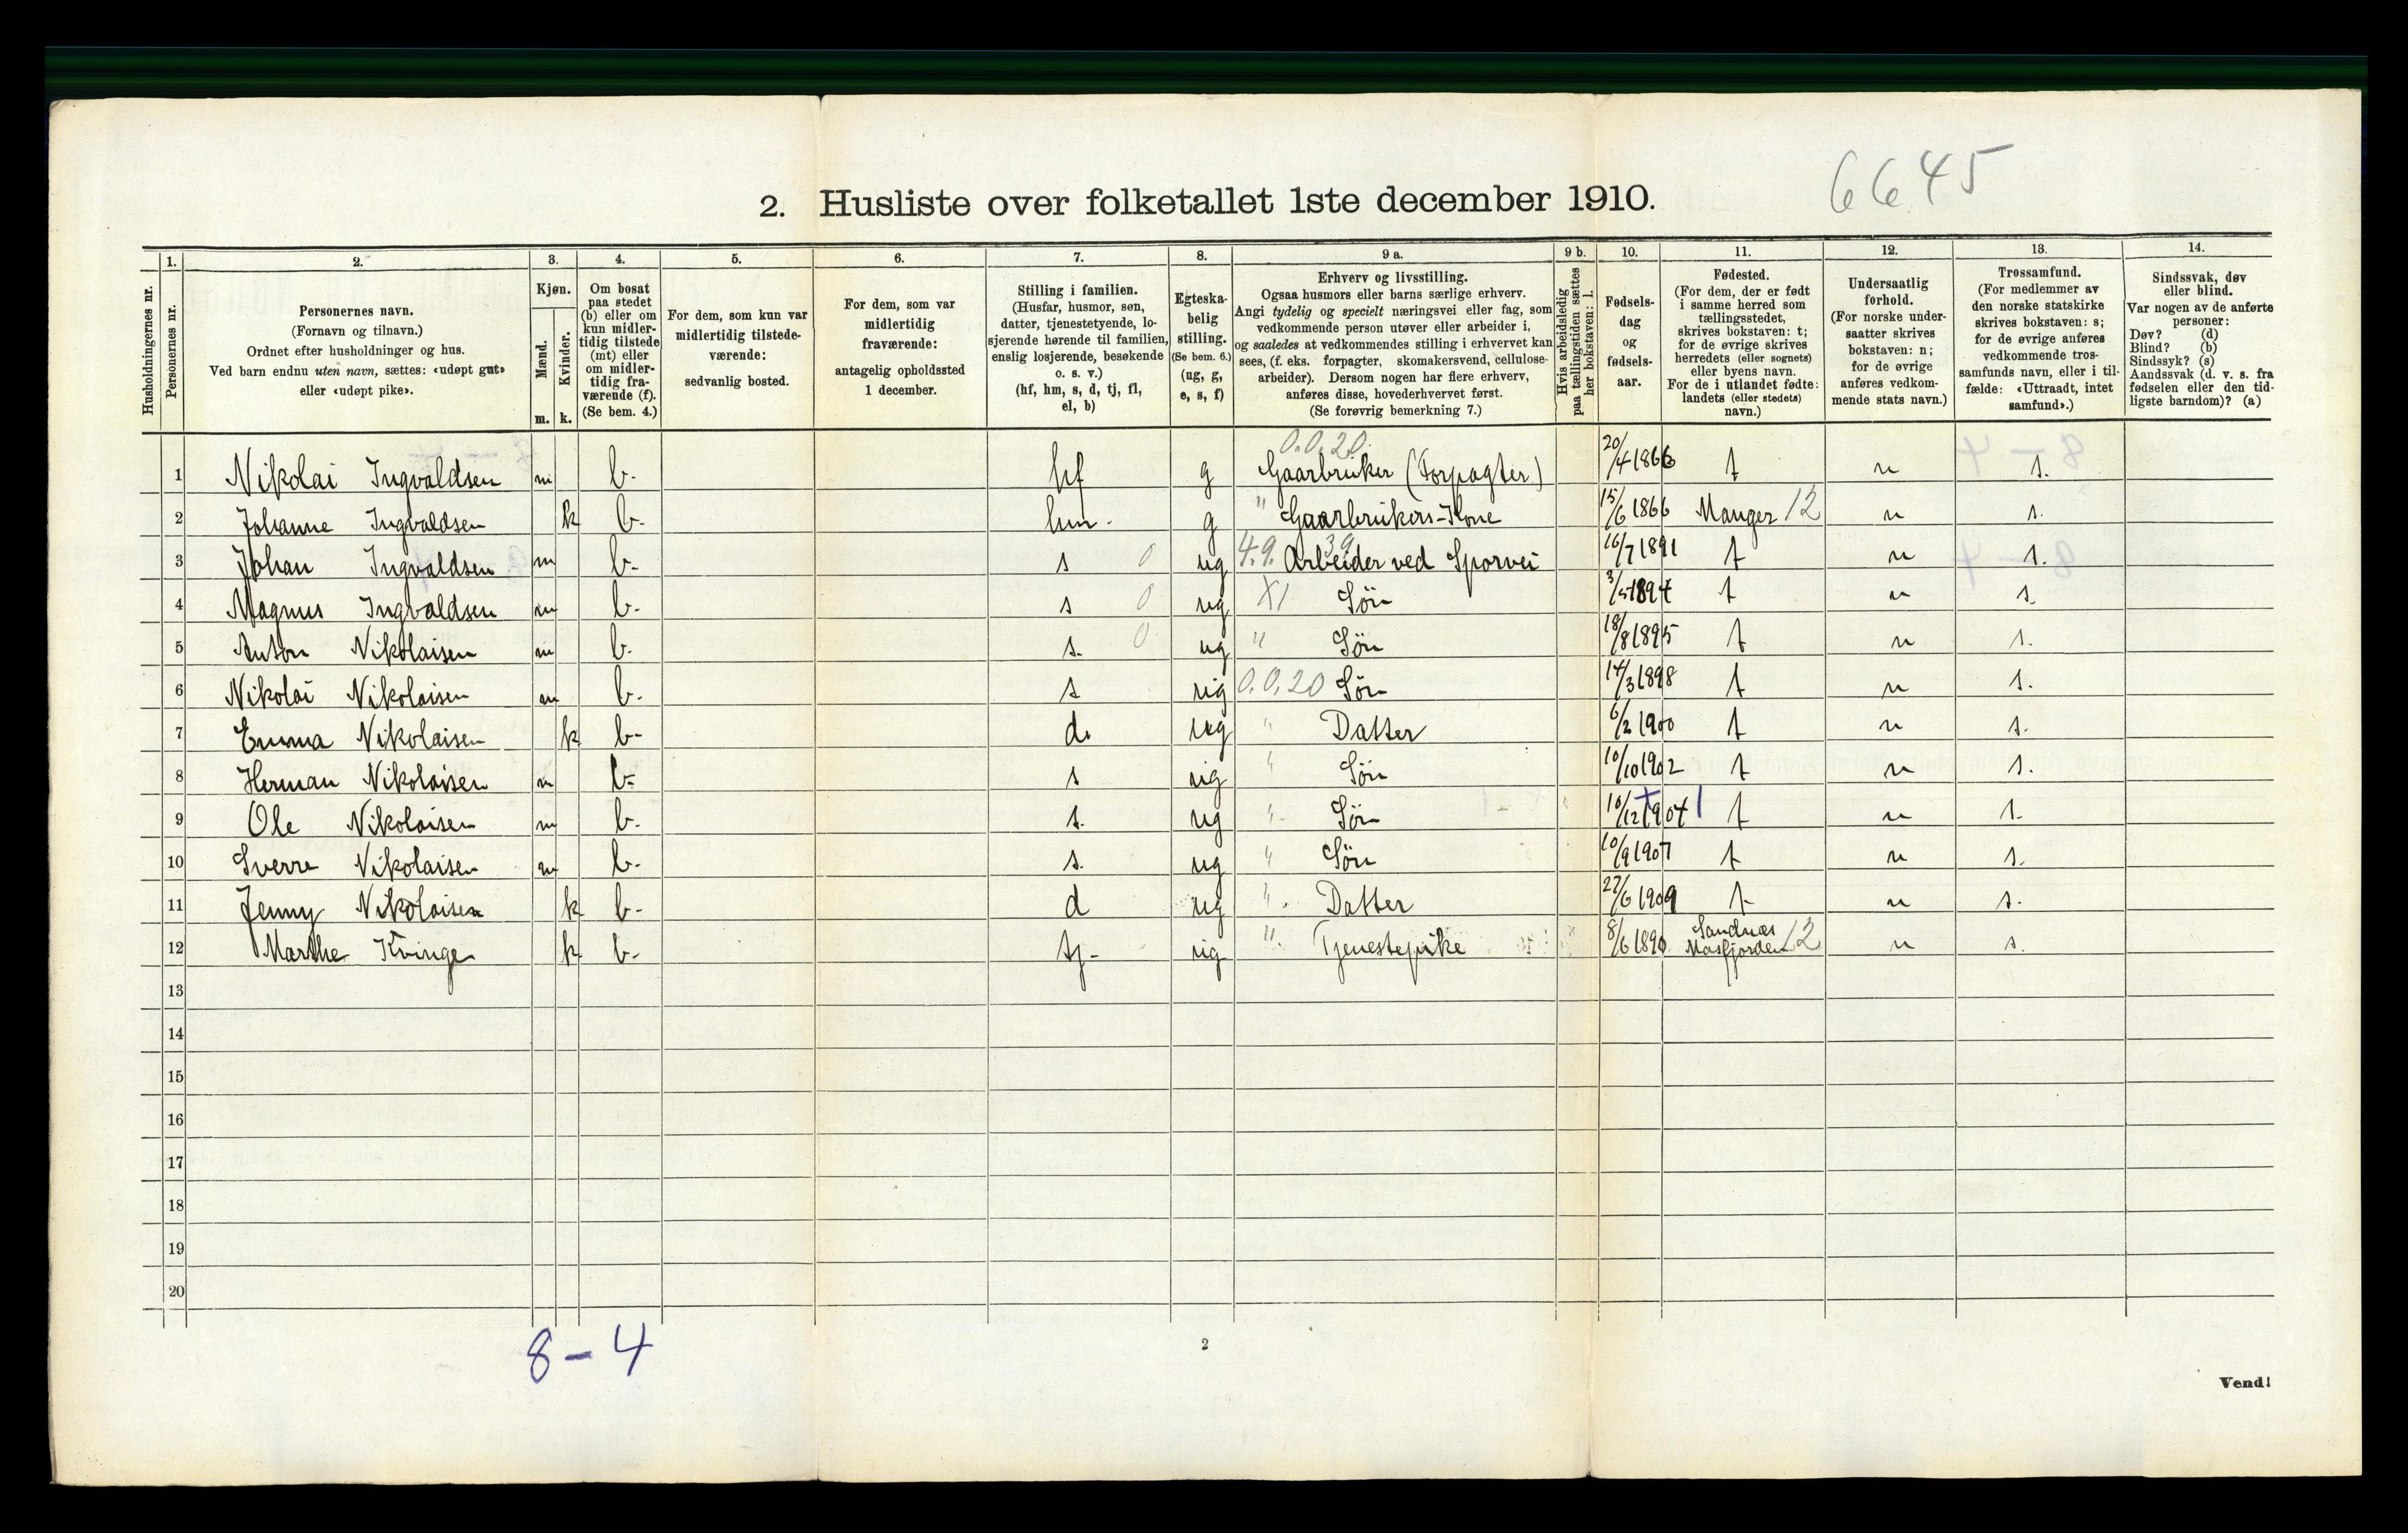 6645
2. Husliste over folketallet 1ste december 1910.
Husholdningernes nr.
1. Personernes nr.
2. Personernes navn. (Fornavn og tilnavn.) Ordnet efter husholdninger og hus. Ved barn endnu uten navn, sættes: «udøpt gut» eller «udøpt pike».
3. Kjøn. Mænd. m. Kvinder. k.
4. Om bosat paa stedet (b) eller om kun midlertidig tilstede (mt) eller om midlertidig fraværende (f). (Se bem. 4.)
5. For dem, som kun var midlertidig tilstedeværende: sedvanlig bosted.
6. For dem, som var midlertidig fraværende: antagelig opholdssted 1 december.
7. Stilling i familien. (Husfar, husmor, søn, datter, tjenestetyende, losjerende hørende til familien, enslig losjerende, besøkende o. s. v.) (hf, hm, s, d, tj, fl, el, b)
8. Egteskabelig stilling. (Se bem. 6.) (ug, g, e, s, f)
9 a. Erhverv og livsstilling. Ogsaa husmors eller barns særlige erhverv. Angi tydelig og specielt næringsvei eller fag, som vedkommende person utøver eller arbeider i, og saaledes at vedkommendes stilling i erhvervet kan sees, (f. eks. forpagter, skomakersvend, cellulosearbeider). Dersom nogen har flere erhverv, anføres disse, hovederhvervet først. (Se forøvrig bemerkning 7.)
9 b. Hvis arbeidsledig paa tællingstiden sættes her bokstaven: l.
10. Fødselsdag og fødselsaar.
11. Fødested. (For dem, der er født i samme herred som tællingsstedet, skrives bokstaven: t; for de øvrige skrives herredets (eller sognets) eller byens navn. For de i utlandet fødte: landets (eller stedets) navn.)
12. Undersaatlig forhold. (For norske undersaatter skrives bokstaven: n; for de øvrige anføres vedkommende stats navn.)
13. Trossamfund. (For medlemmer av den norske statskirke skrives bokstaven: s; for de øvrige anføres vedkommende trossamfunds navn, eller i tilfælde: «Uttraadt, intet samfund».)
14. Sindssvak, døv eller blind. Var nogen av de anførte personer: Døv? (d) Blind? (b) Sindssyk? (s) Aandssvak (d. v. s. fra fødselen eller den tidligste barndom)? (a)
0.0.20
1 Nikolai Ingvaldsen m b. hf g Gaarbruker (Forpagter) 20/4 1866 t n s.
2 Johanne Ingvaldsen k b. hm. g " Gaarbrukers-Kone 15/6 1866 Manger 12 n s.
3 Johan Ingvaldsen m b. s 0 ug 4.9. 39 Arbeider ved Sporvei 16/7 1891 t n s.
4 Magnus Ingvaldsen m b. s 0 ug XI Søn 3/5 1894 t n s.
5 Anton Nikolaisen m b. s. 0 ug " Søn 18/8 1895 t n s.
6 Nikolai Nikolaisen m b. s ug 0.0.20 Søn 14/3 1898 t n s.
7 Emma Nikolaisen k b- d. ug " Datter 6/2 1900 t n s.
8 Herman Nikolaisen m b- s ug " Søn 10/10 1902 t n s.
9 Ole Nikolaisen m b. s. ug " Søn 10/12 1904 t n s.
10 Sverre Nikolaisen m b- s. ug " Søn 10/9 1907 t n s.
11 Jenny Nikolaisen k b- d ug " Datter 27/6 1909 t n s.
12 Marthe Kvinge k b- tj- ug " Tjenestepike 8/6 1890 Sandnæs Masfjorden 12 n s.
13
14
15
16
17
18
19
20
8-4
2
Vend!